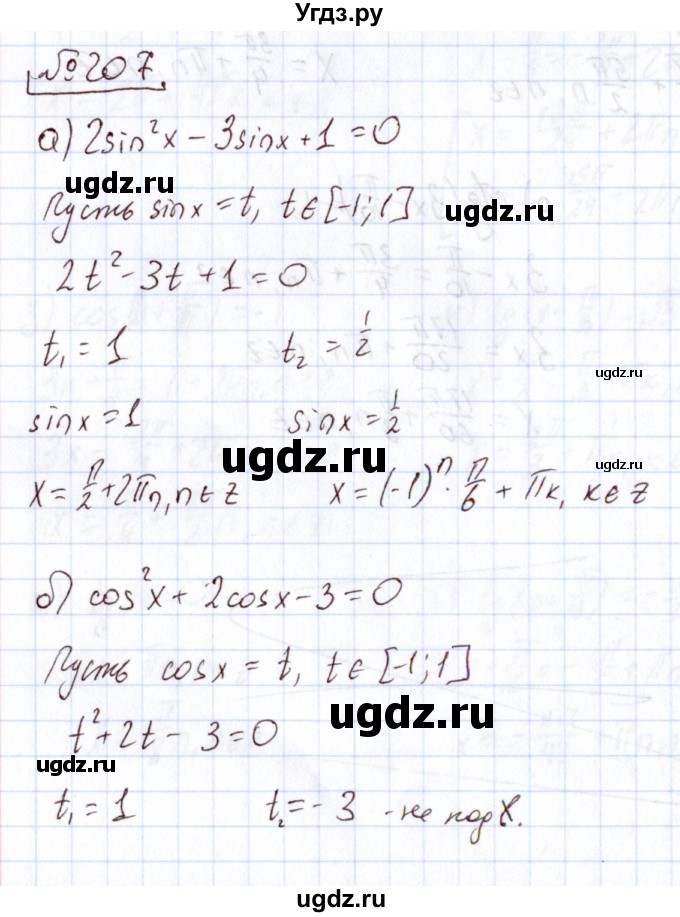 Угдз.ру
№207.
а) 2sin²x – 3sinx + 1 = 0
ugdz.ru
Пусть sinx = t, t ∈ [-1; 1]
ugdz.ru
2t² - 3t + 1 = 0
t₁ = 1 t₂ = 1/2
ugdz.ru
sinx = 1 sinx = 1/2
ugdz.ru
x = π/2 + 2πn, n ∈ z x = (-1)ⁿ · π/6 + πk, k ∈ z
ugdz.ru
б) cos²x + 2cosx - 3 = 0
Пусть cosx = t, t ∈ [-1; 1]
ugdz.ru
t² + 2t - 3 = 0
ugdz.ru
t₁ = 1 t₂ = - 3 - не подх.
ugdz.ru